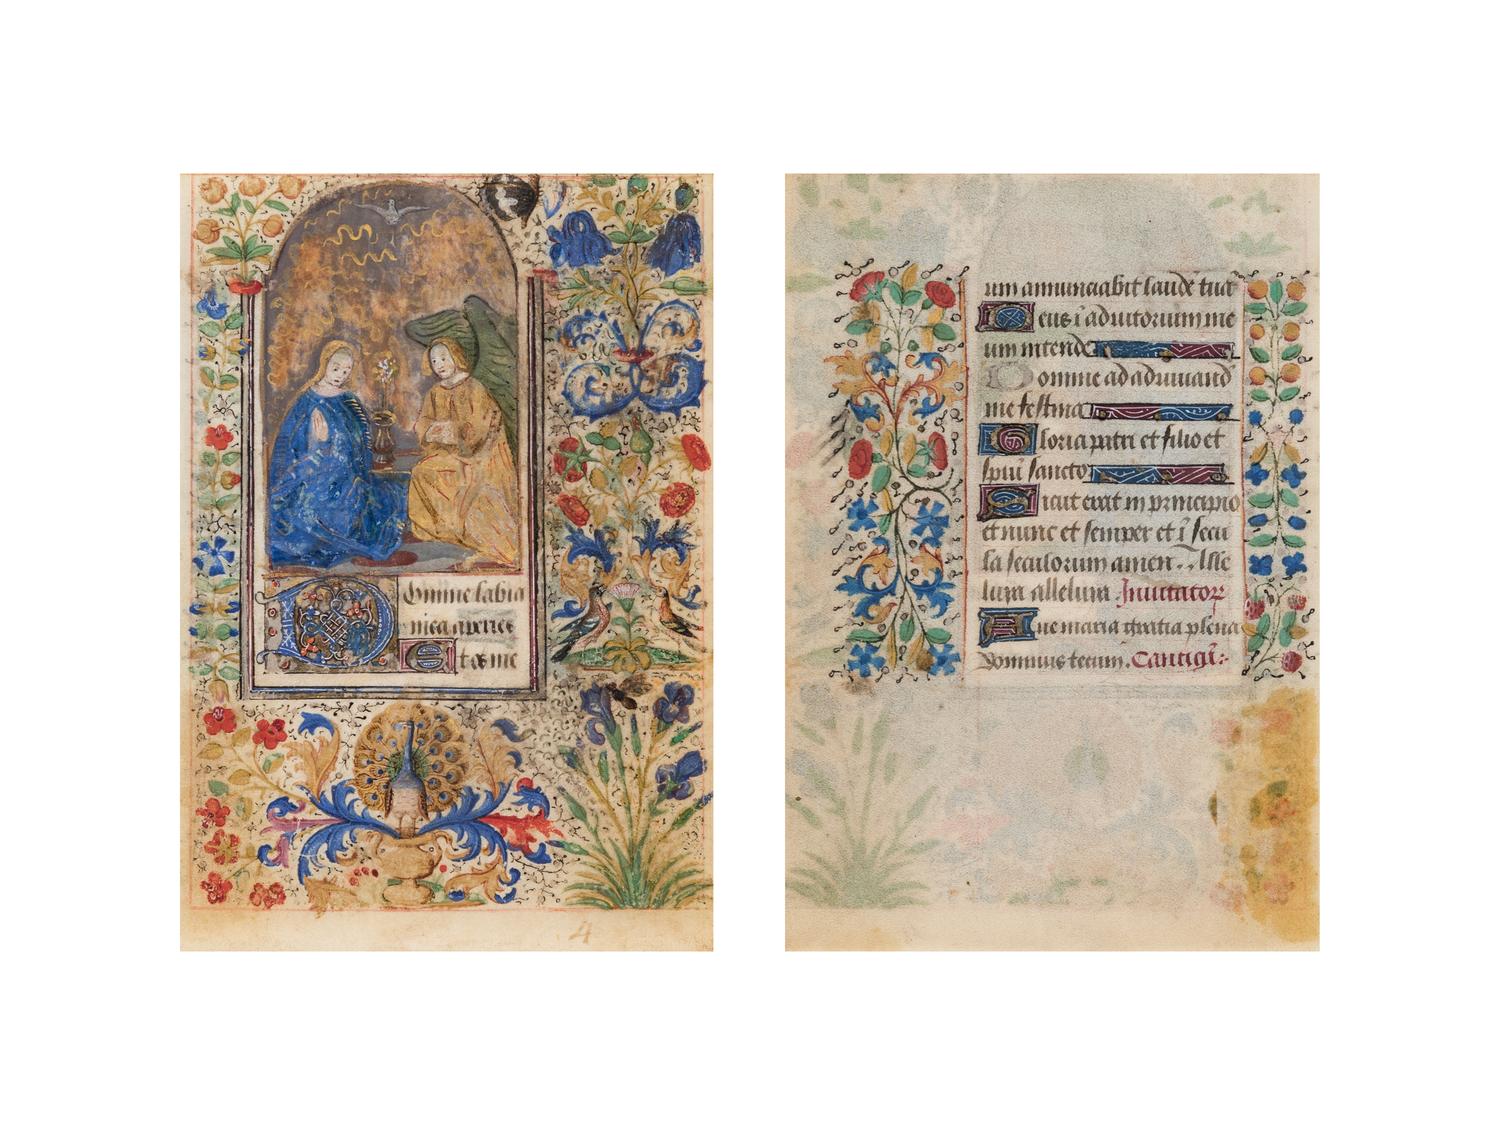 Domine labia
mea aperies
Et os me
4
um annunciabit laudē tuā
Deus ī adiutorium me
um intende
Domine ad adiuuand
me festina
Gloria patri et filio et
spiū sancto
Sicut erat in principio
et nunc et semper et ī secu
la seculorum amen. Alle
luya alleluya. Inuitator
Aue maria gratia plena
dominus tecum. Cantiqū: